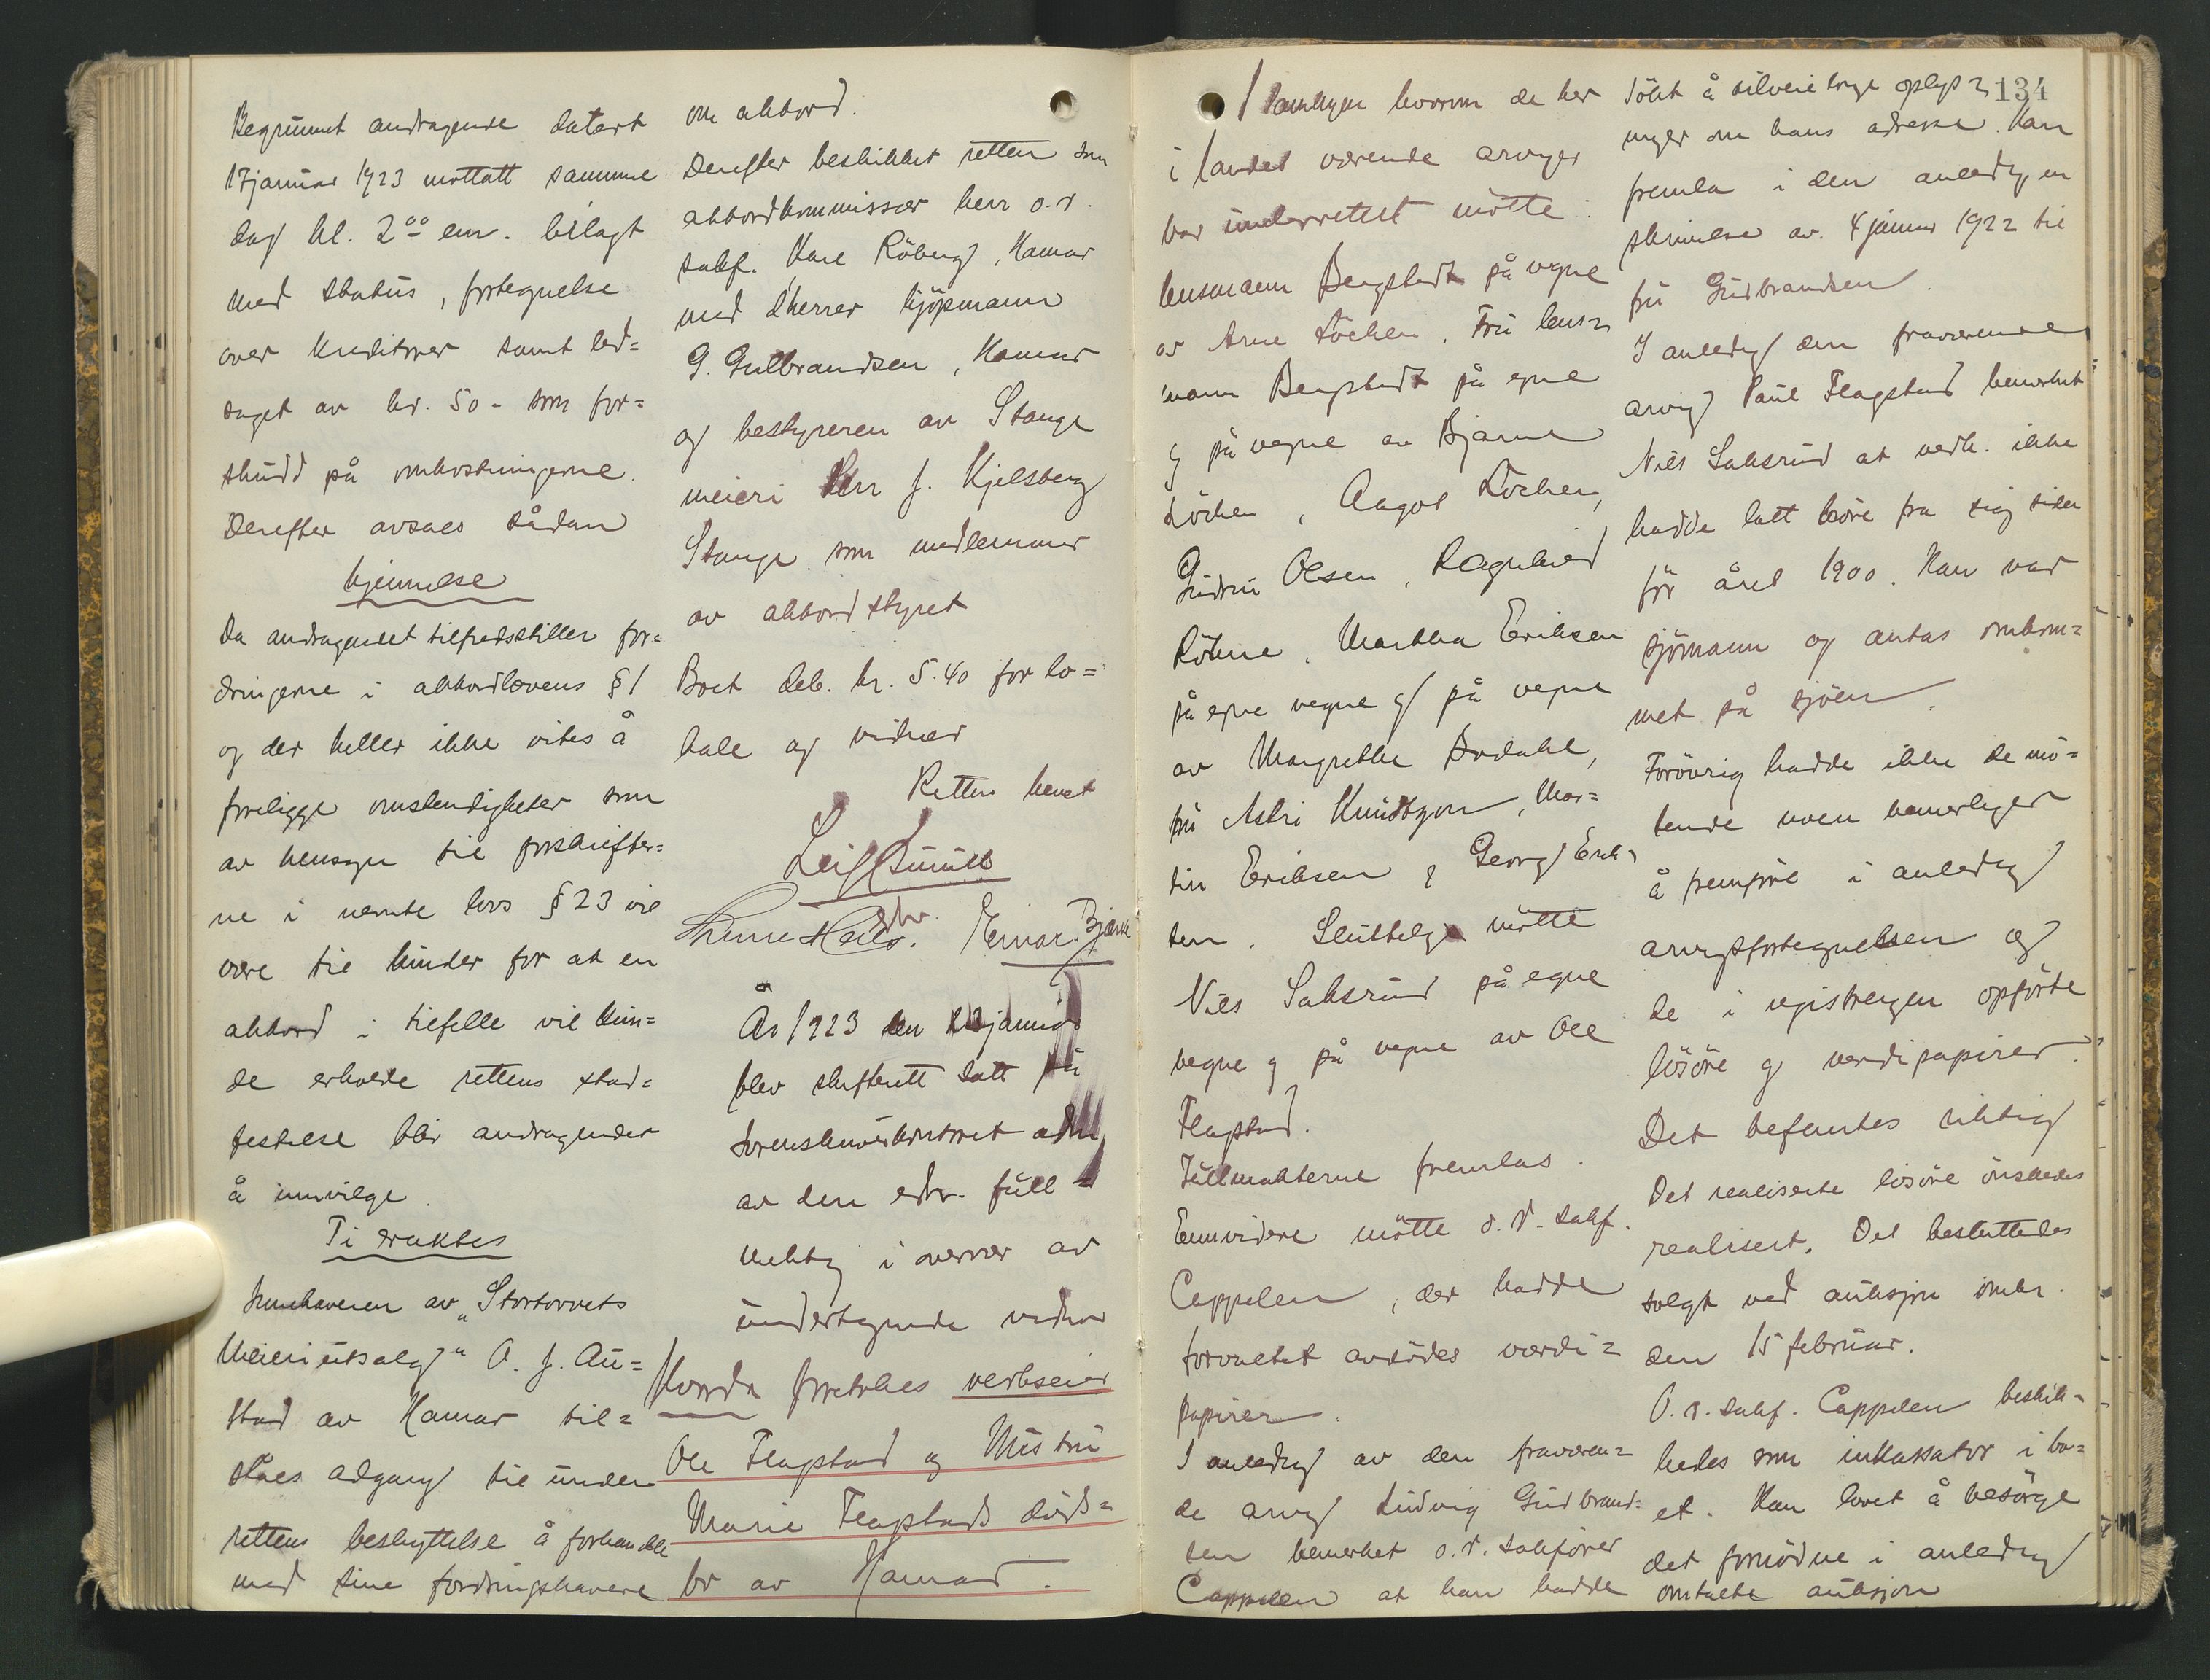 Begrunnet andragende datert
17 januar 1923 mottatt samme
dag kl. 2⁰⁰ em. bilagt
med status, fortegnelse
over kreditorer samt led=
saget av kr. 50- som for=
skudd på omkostningerne.
Derefter avsaes sådan
kjennelse
Da andragendet tilfredsstiller for=
dringerne i akkordlovens § 1
og der heller ikke vites å
foreligge omstendigheter som
av hensyn til forskrifter=
ne i nevnte lovs § 23 vil
være til hinder for at en
akkord i tilfelle vil kun=
de erholde rettens stad=
festelse blir andragendet
å innvilge.
Ti eraktes
Innehaveren av „Stortorvets
Meieriutsalg" O. J. Au=
stad av Hamar til=
ståes adgang til under
rettens beskyttelse å forhandle
med sine fordringshavere
om akkord.
Derefter beskikket retten som
akkordkommissær herr o.r.
sakf. Kare Röberg, Hamar
med d'herrer kjöpmann
G. Gulbrandsen, Hamar
og bestyreren av Stange
meieri herr J. Kjelsberg
Stange som medlemmer
av akkordstyret
Boet deb. kr. 5.40 for lo=
kale og vidner
Retten hevet
Leif
edv.
Einar Bjørke
År 1923 den 23 januar
blev skifterett satt på
sorenskriverkontoret adm.
av den edv. full=
mektig i overvær av
undertegnede vidner
Hvorda foretokes verkseier
Ole Flagstad og Mistru
Marie Flagstads döds=
bo av Hamar.
134
I samlingen hvorom de her
i landet værende arvinger
var underrettet mötte:
lensmann Bergstedt på vegne
av Arne Löchen. Fru lens=
mann Bergstedt på egne
og på vegne av Bjarne
Löchen, Aagot Löchen,
Gudrun Olsen, Ragnhild
Röhne, Martha Eriksen
på egne vegne og på vegne
av Margrethe Dodahl,
fru Astri Knudtzon, Mar=
tin Eriksen og Georg Erik=
sen. Sluttelig mötte
Nils Saksrud på egne
vegne og på vegne av Ole
Flagstad.
Fullmakterne fremlas.
Ennvidere mötte o.r.sakf.
Cappelen, der hadde
forvaltet avdödes verdi=
papirer.
I anledng av den fraværen=
de arvg Ludvig Gudbrand=
sen bemerket o.r.sakförer
Cappelen at han hadde
sökt å tilveiebringe oplys=
nger om hans adresse. Han
fremla i den anledng en
skrivelse av 4 januar 1922 til
fru Gudbrandsen.
I anledng den fraværende
arvg Paul Flagstad bemerket
Nils Saksrud at vedk. ikke
hadde latt höre fra sig siden
för året 1900. Han var
sjömann og antas omkom=
met på sjöen.
Forövrig hadde ikke de mö=
tende noen bemerknger
å fremföre i anledng
arvgsfortegnelsen og
de i registrergen opförte
lösöre og verdipapirer.
Det befantes riktig
Det realiserte lösöre önskedes
realisert. Det besluttedes
solgt ved auksjon omkr.
den 15 februar.
O.r.sakf. Cappelen beskik=
kedes som inkassator i bo=
et. Han lovet å besörge
det fornödne i anledng
omtalte auksjon